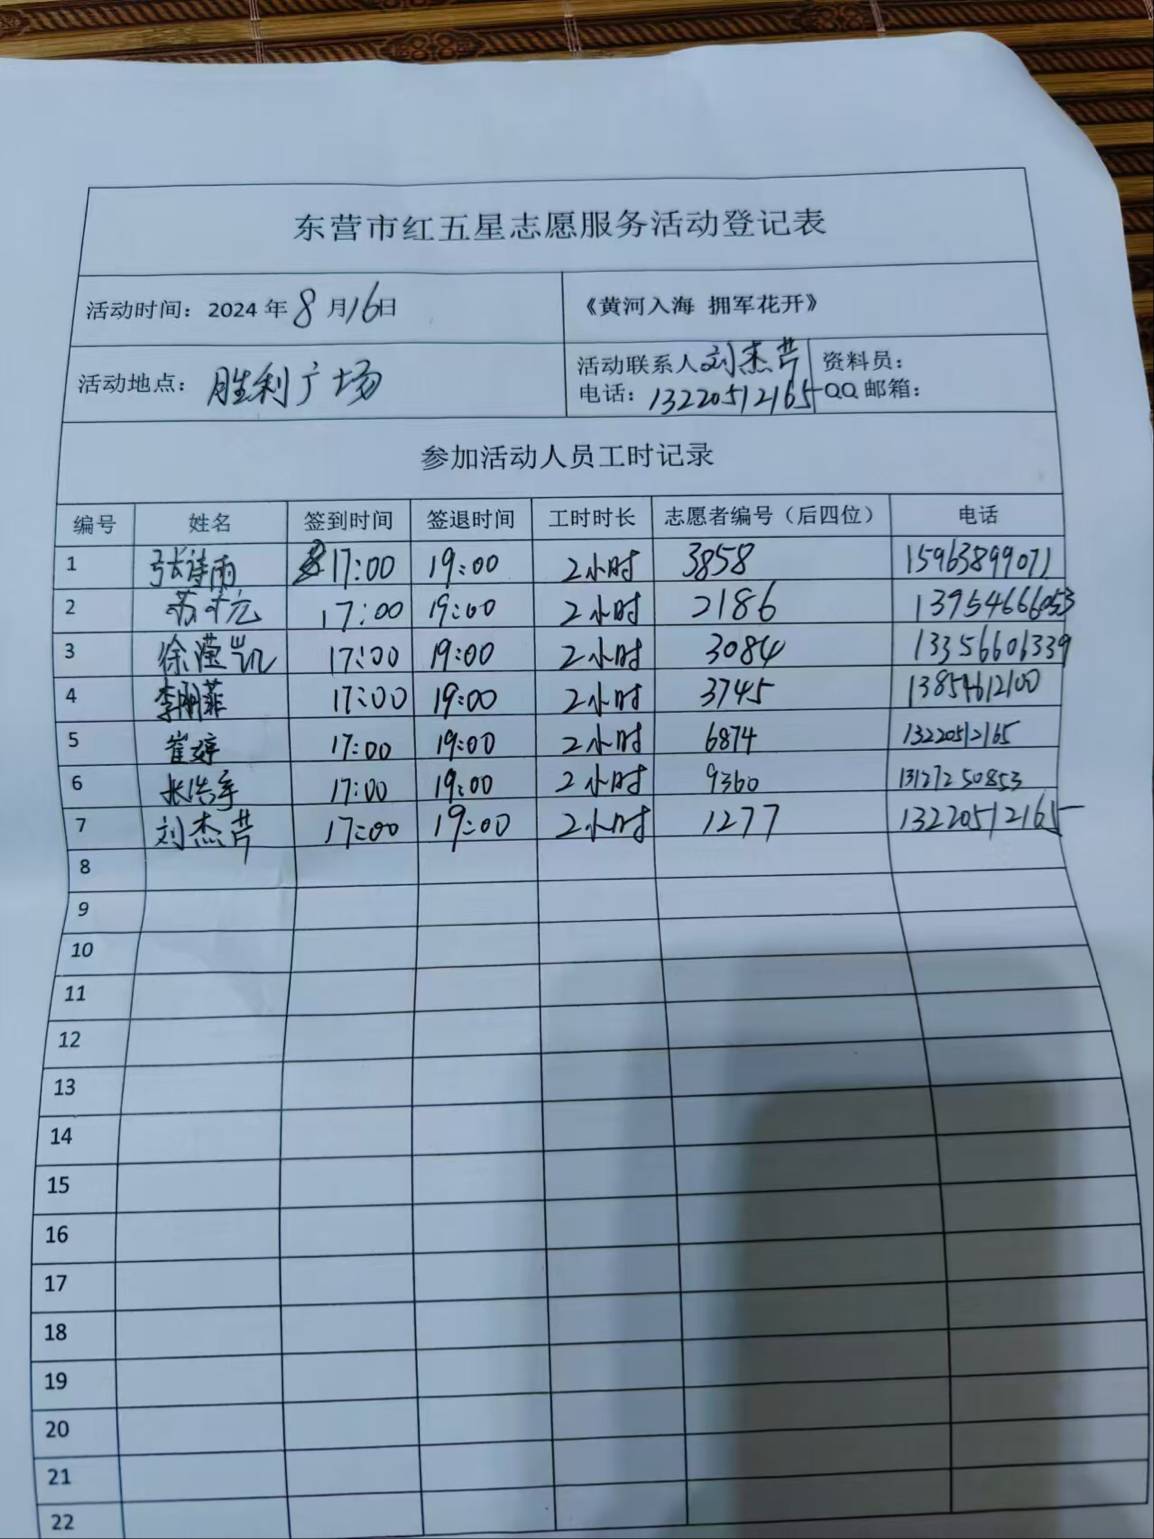 东营市红五星志愿服务活动登记表
活动时间：2024 年 8 月 16 日 《黄河入海 拥军花开》
活动地点：胜利广场 活动联系人 刘杰芹 资料员：
电话：13220512165 QQ 邮箱：
参加活动人员工时记录
编号 姓名 签到时间 签退时间 工时时长 志愿者编号（后四位） 电话
1 张诗雨 17:00 19:00 2小时 3858 15963899071
2 17:00 19:00 2小时 2186 13954666053
3 徐滢凯 17:00 19:00 2小时 3084 13356601339
4 17:00 19:00 2小时 3745 13854612100
5 崔婷 17:00 19:00 2小时 6874 13220512165
6 张浩宇 17:00 19:00 2小时 9360 13127250853
7 刘杰芹 17:00 19:00 2小时 1277 13220512165
8
9
10
11
12
13
14
15
16
17
18
19
20
21
22